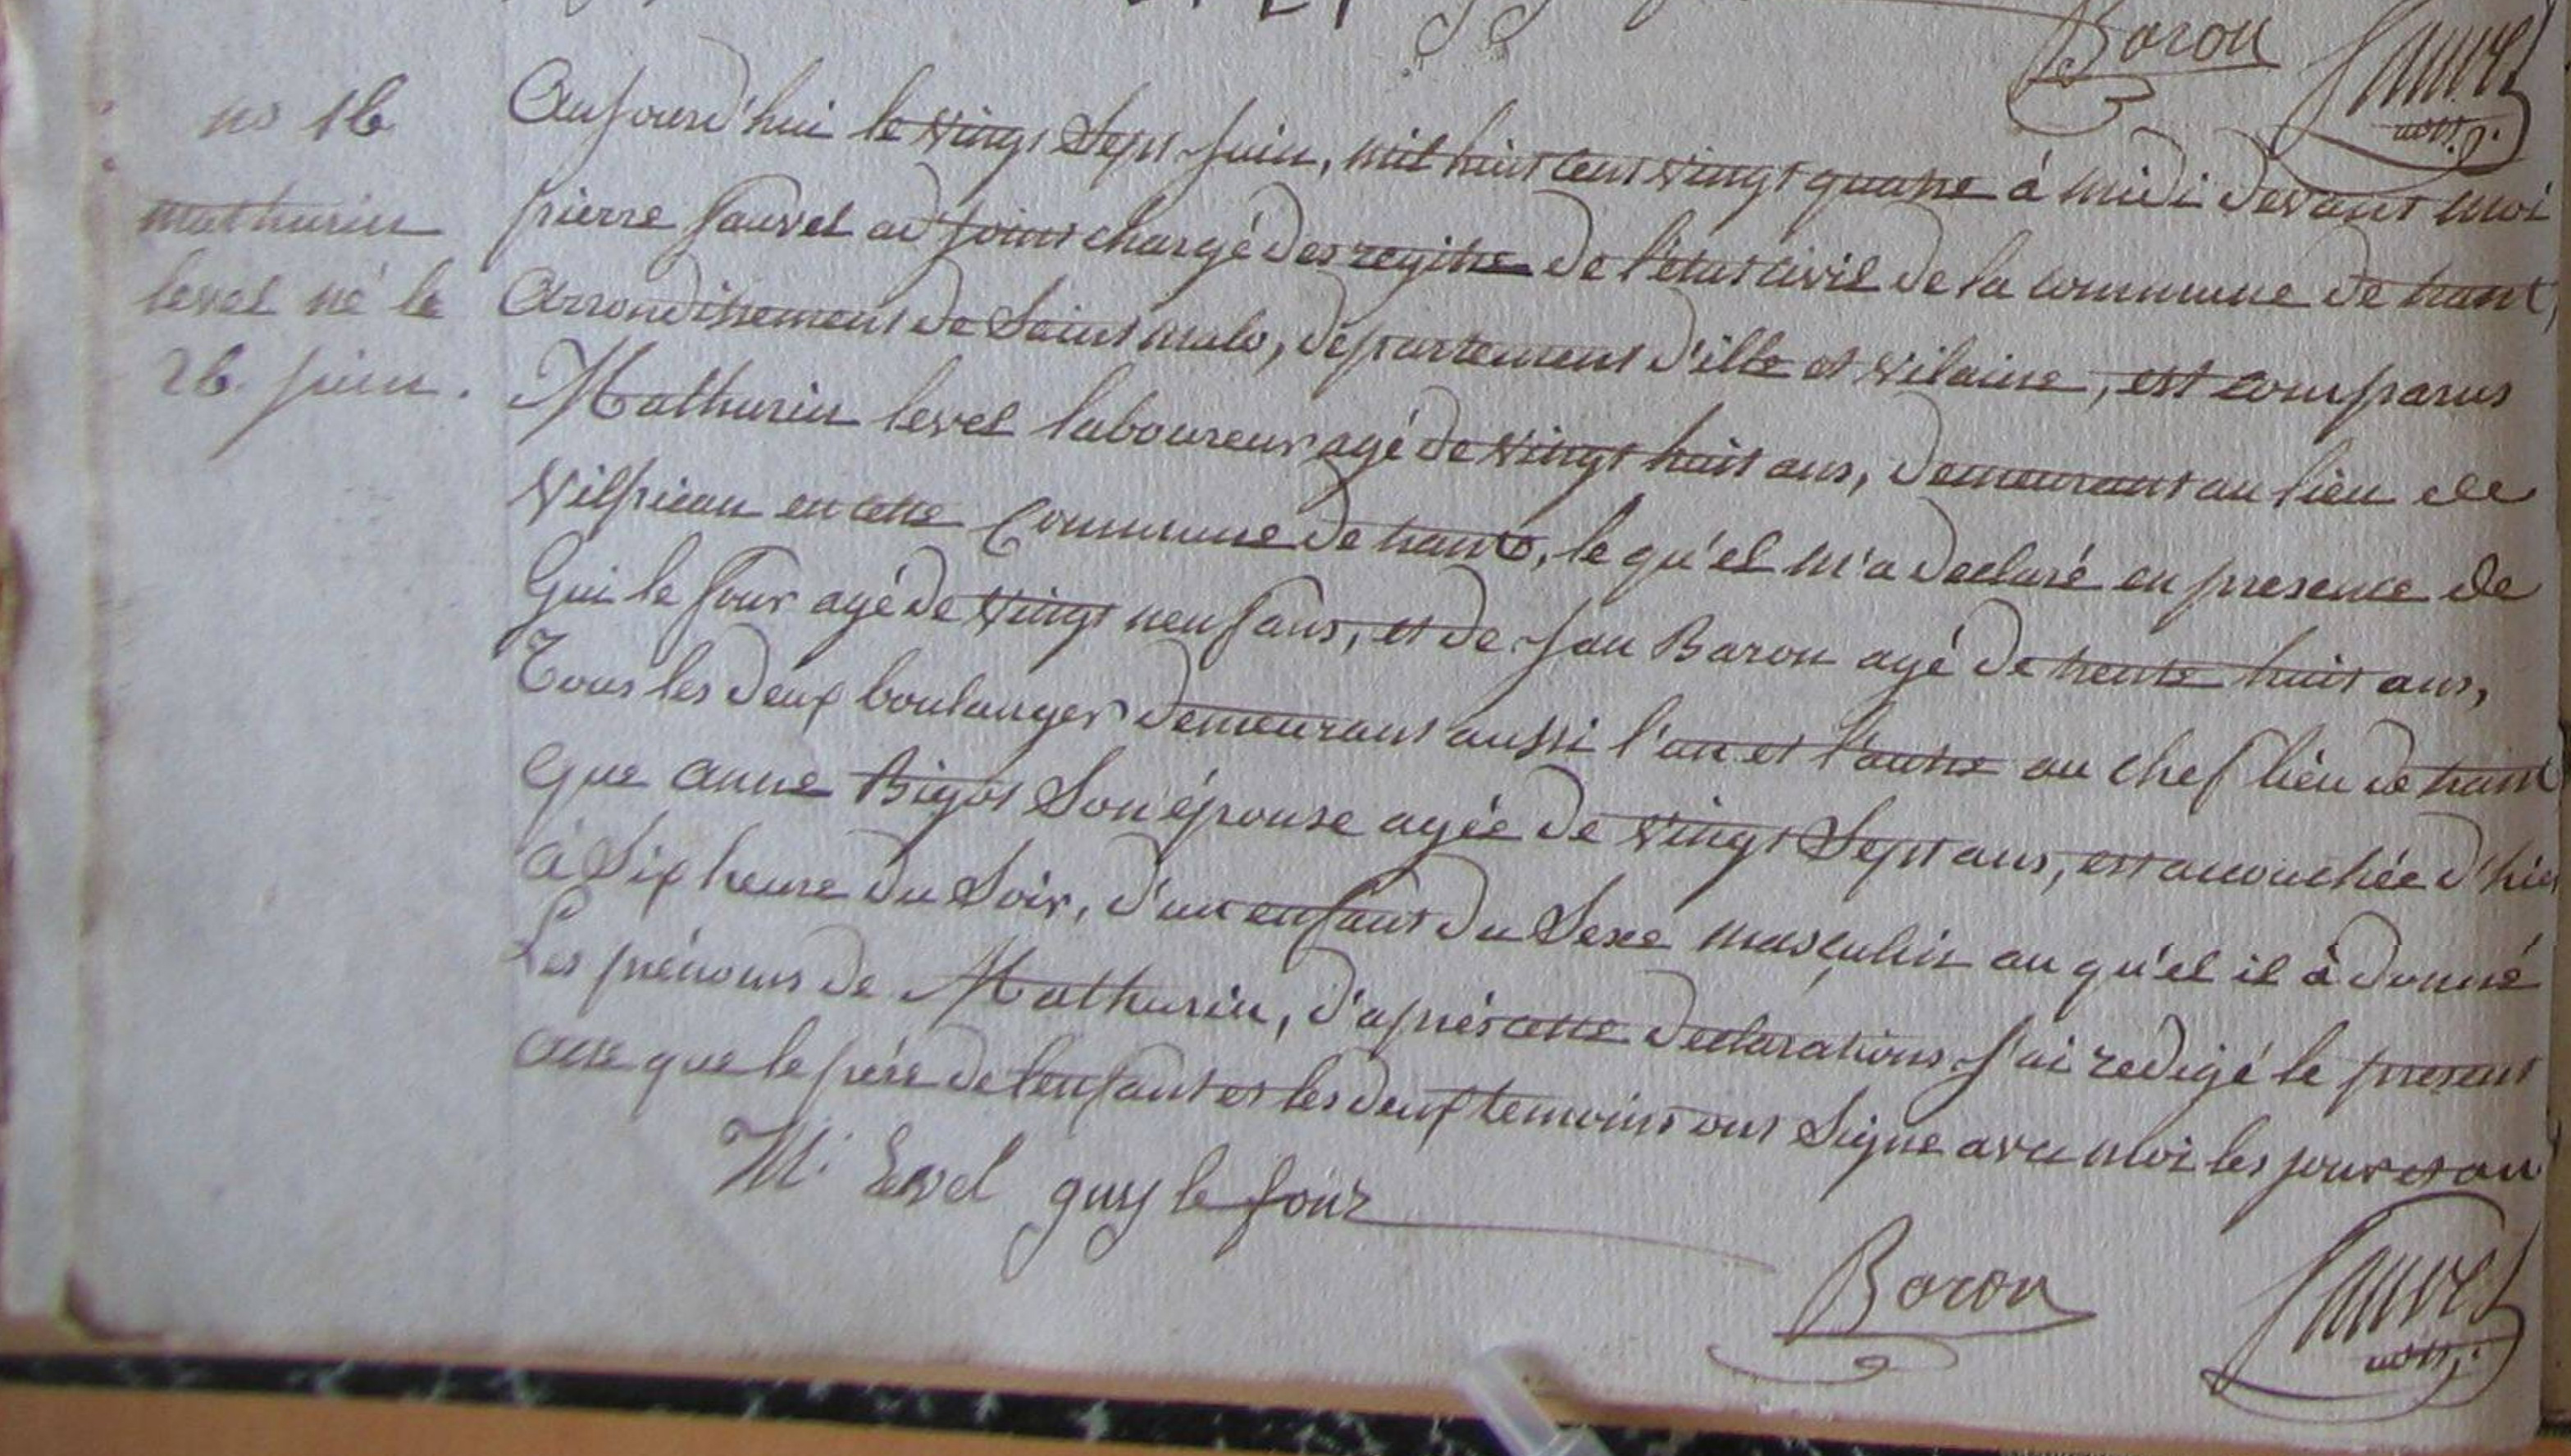 Baron Sauvel
adj.
no 16
mathurin
level né le
26 juin.
Aujourd'hui le vingt Sept Juin, mil huit cent vingt quatre à midi devant moi
pierre Sauvel adjoint chargé des regitre de l'état civil de la commune de trans,
Arrondissement de Saint malo, département d'ille et vilaine, est comparus
Mathurin level laboureur agé de vingt huit ans, demeurant au lieu de
Vilpican en cette Commune de trans, le qu'el m'a declaré en presence de
Gui le four agé de vingt neuf ans, et de Jan Baron agé de trente huit ans,
Tous les deux boulanger demeurant aussi l'un et l'autre au chef lieu de trans
Que anne Bigot Son épouse agée de vingt Sept ans, est accouchée d'hier
à Six heure du Soir, d'un enfant du Sexe masculin au qu'el il à donné
Les prénoms de Mathurin, d'aprés cette declarations J'ai redigé le present
acte que le père de l'enfant et les deux temoins ont Signe avec moi les jour et an
M. Level guy le four
Baron Sauvel
adj.